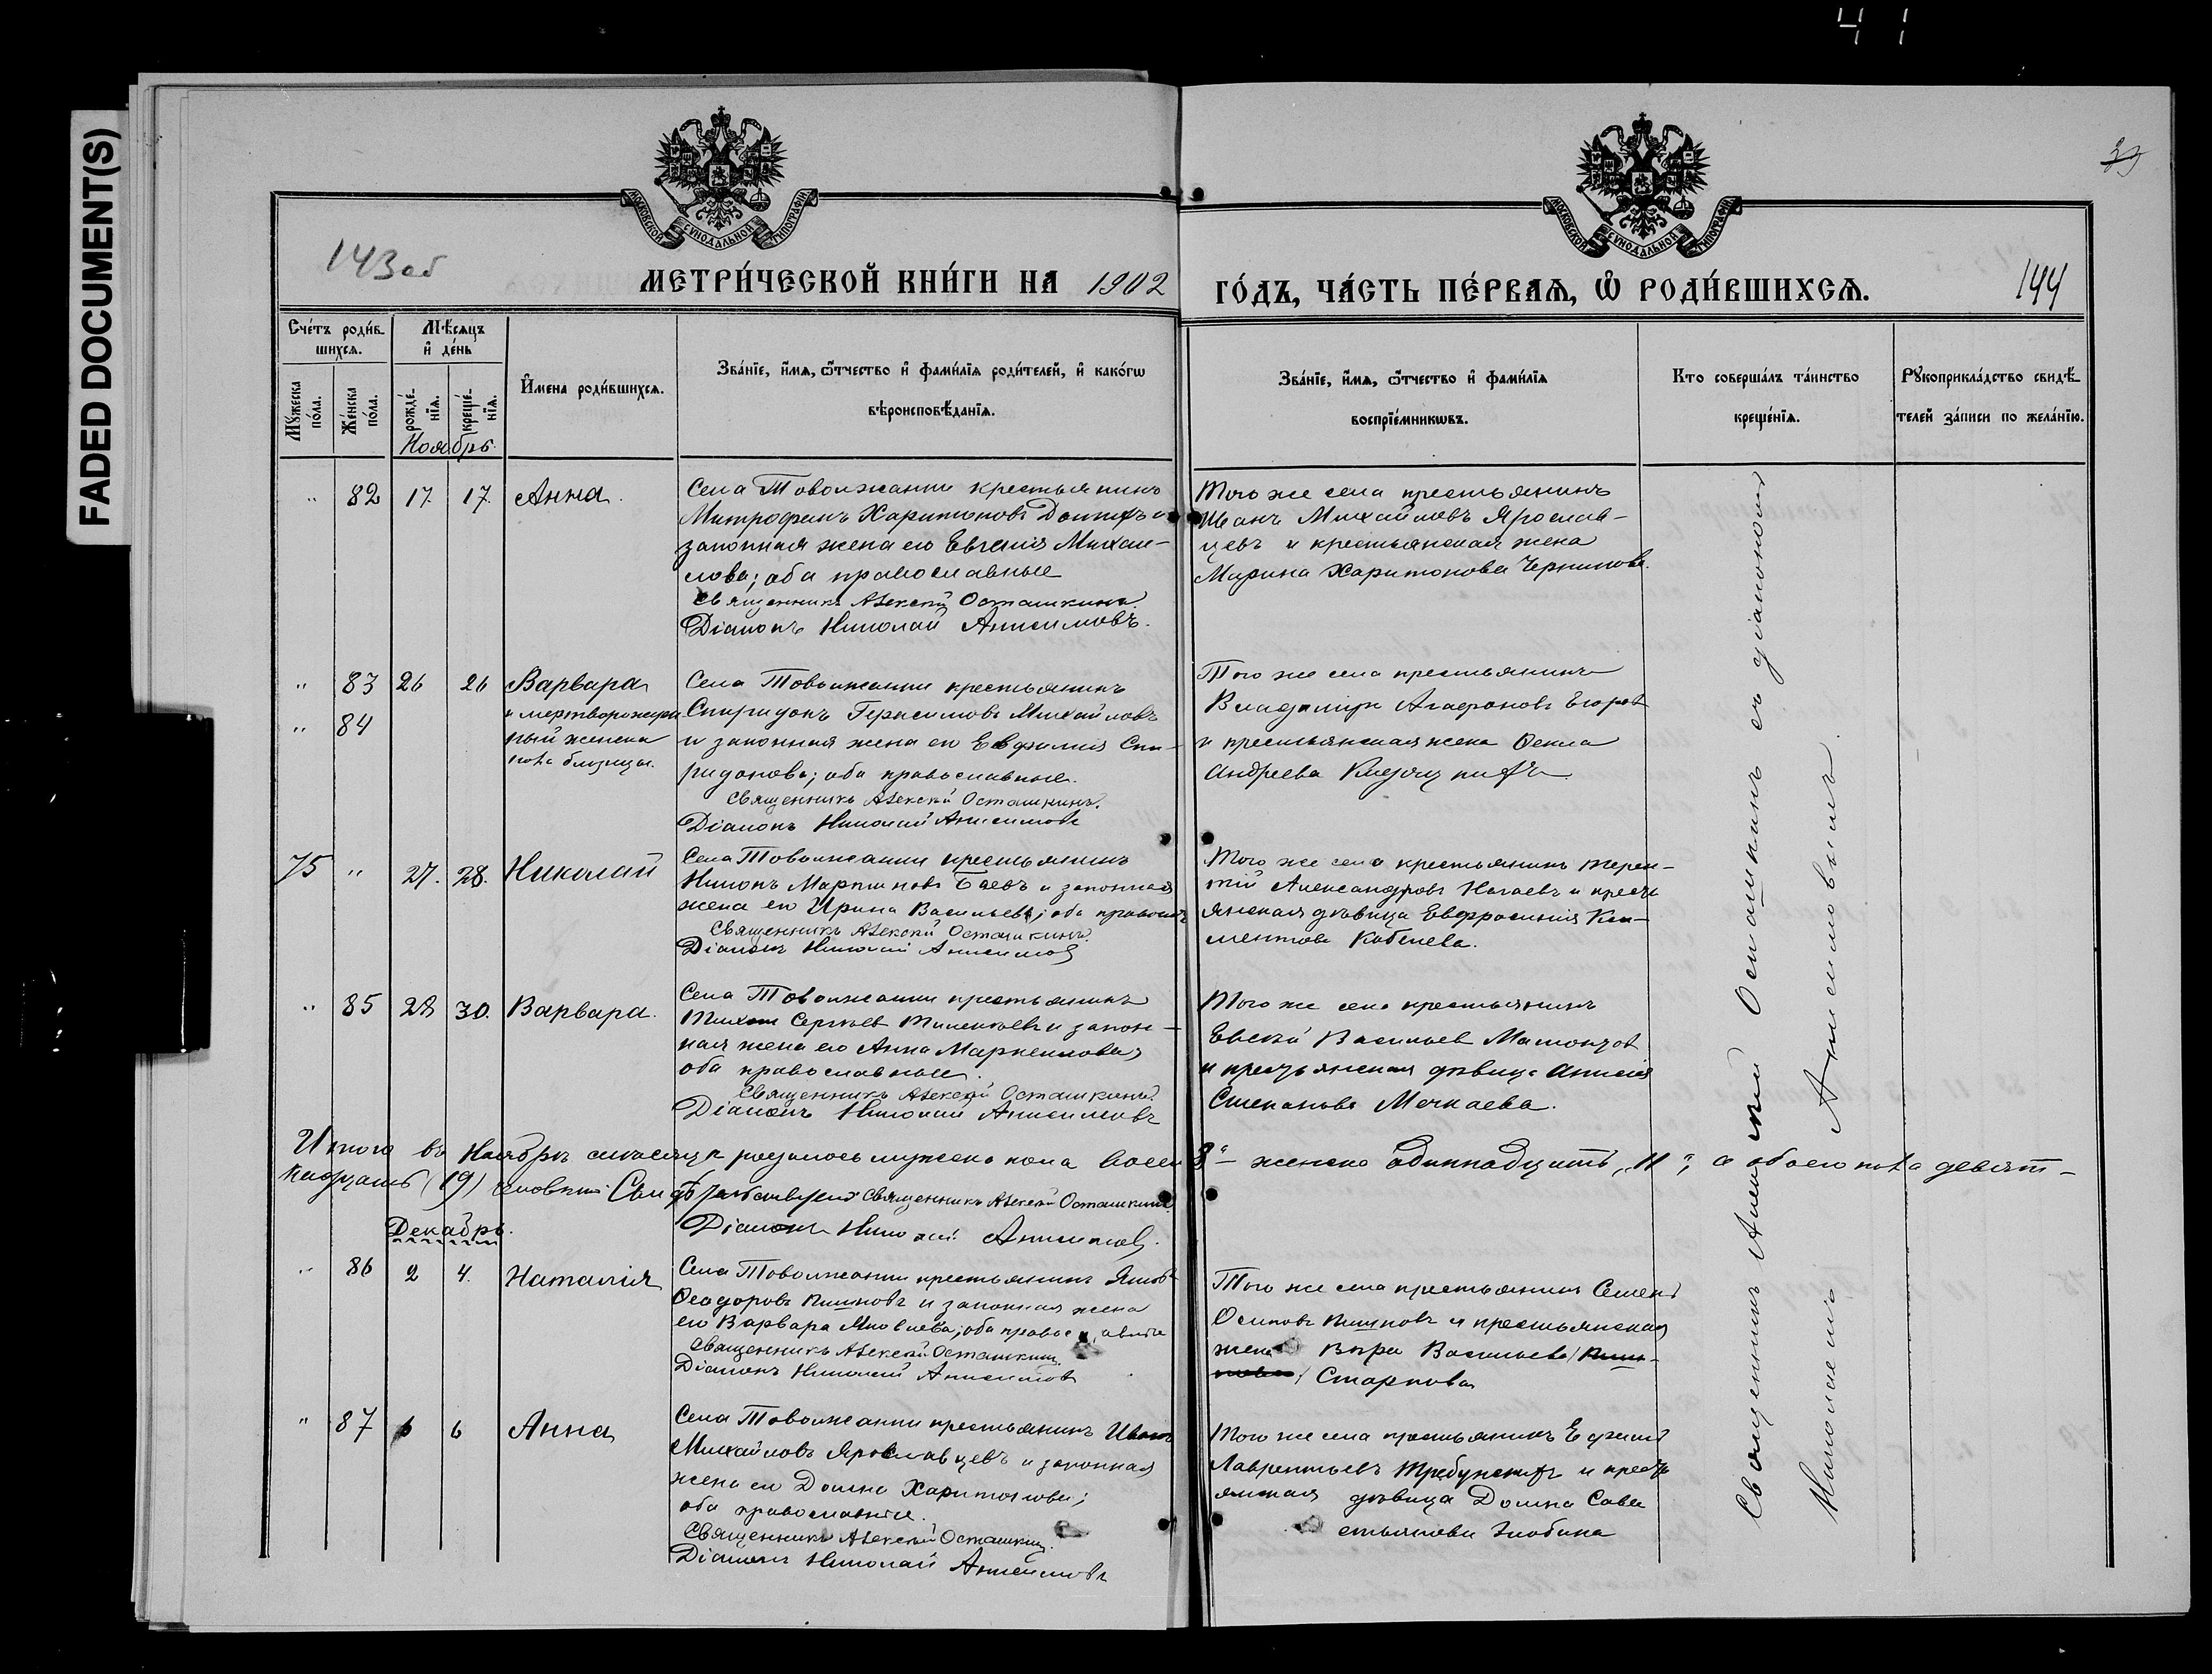 41
39
FADED DOCUMENT(S)
МОСКОВСКОЙ СѴНОДАЛЬНОЙ ТИПОГРАФІИ
МОСКОВСКОЙ СѴНОДАЛЬНОЙ ТИПОГРАФІИ
143об
МЕТРИ́ЧЕСКОЙ КНИ́ГИ НА 1902 ГО́ДЪ, ЧА́СТЬ ПЕ́РВАѦ, Ѡ РОДИ́ВШИХСѦ.
144
Сче́тъ роди́в-
шихсѧ.
Мѣ́сѧцъ
и҆ де́нь
Мꙋжеска
по́ла.
Же́нска
по́ла.
рожде́-
нїѧ.
креще́-
нїѧ.
И҆мена роди́вшихсѧ.
Зва́нїе, и҆́мѧ, ѻ҆́тчество и҆ фами́лїѧ роди́телей, и҆ како́гѡ
вѣроисповѣ́данїѧ.
Зва́нїе, и҆́мѧ, ѻ҆́тчество и҆ фами́лїѧ
воспрїе́мникѡвъ.
Кто соверша́лъ та́инство
креще́нїѧ.
Рꙋкоприкла́дство свидѣ́-
телей за́писи по жела́нїю.
Ноябрь.
" 82 17. 17. Анна.
Села Товолжанки крестьянинъ
Митрофанъ Харитоновъ и
законная жена его Евгенія Михаи-
лова; оба православные
Священникъ Алексѣй Осташкинъ.
Діаконъ Николай Анисимовъ.
Того же села крестьянинъ
Иванъ Михайловъ Ярослав-
цевъ и крестьянская жена
Марина Харитонова Черникова.
" 83 26 26 Варвара
" 84 и мертворожден-
ный женска
пола близнецъ.
Села Товолжанки крестьянинъ
Спиридонъ Герасимовъ Михайловъ
и законная жена его Евфимія Спи-
ридонова; оба православные.
Священникъ Алексѣй Осташкинъ.
Діаконъ Николай Анисимовъ
Того же села крестьянинъ
Владимиръ Агафоновъ Егоровъ
и крестьянская жена Ѳекла
Андреева
75 " 27. 28. Николай
Села Товолжанки крестьянинъ
Никонъ Мартиновъ Баевъ и законная
жена его Ирина Васильева; оба православ.
Священникъ Алексѣй Осташкинъ.
Діаконъ Николай Анисимовъ
Того же села крестьянинъ Терен-
тій Александровъ Нагаевъ и крест
янская дѣвица Евфросинія Кли-
ментова Кобелева.
" 85 28 30. Варвара.
Села Товолжанки крестьянинъ
Тихонъ Сергѣевъ и закон-
ная жена его Анна Маркеллова
оба православные.
Священникъ Алексѣй Осташкинъ.
Діаконъ Николай Анисимовъ
Того же села крестьянинъ
Евсей Васильевъ Мамонтовъ
и крестьянская дѣвица Анисія
Степанова Мечкаева.
Итого въ Ноябрѣ мѣсяцѣ родилось мужеска пола восемь 8" женска одиннадцать "11", а обоего пола девят-
надцать (19) человѣкъ Священникъ Алексѣй Осташкинъ
Діаконъ Николай Анисимовъ.
Декабрь.
" 86 2 4. Наталія
Села Товолжанки крестьянинъ Яковъ
Ѳеодоровъ и законная жена
его Варвара; оба православные
Священникъ Алексѣй Осташкинъ.
Діаконъ Николай Анисимовъ
Того же села крестьянинъ Семенъ
Осиповъ и крестьянская
жена Вѣра Васильева
Старкова
" 87 6 6 Анна
Села Товолжанки крестьянинъ Иванъ
Михайловъ Ярославцевъ и законная
жена его Домна Харитонова;
оба православные.
Священникъ Алексѣй Осташкинъ.
Діаконъ Николай Анисимовъ
Того же села крестьянинъ Ефимъ
Лаврентьевъ Требунскихъ и крест
янская дѣвица Домна Сава
стьянова Злобина
Священникъ Алексѣй Осташкинъ съ діакономъ
Николаемъ Анисимовымъ.